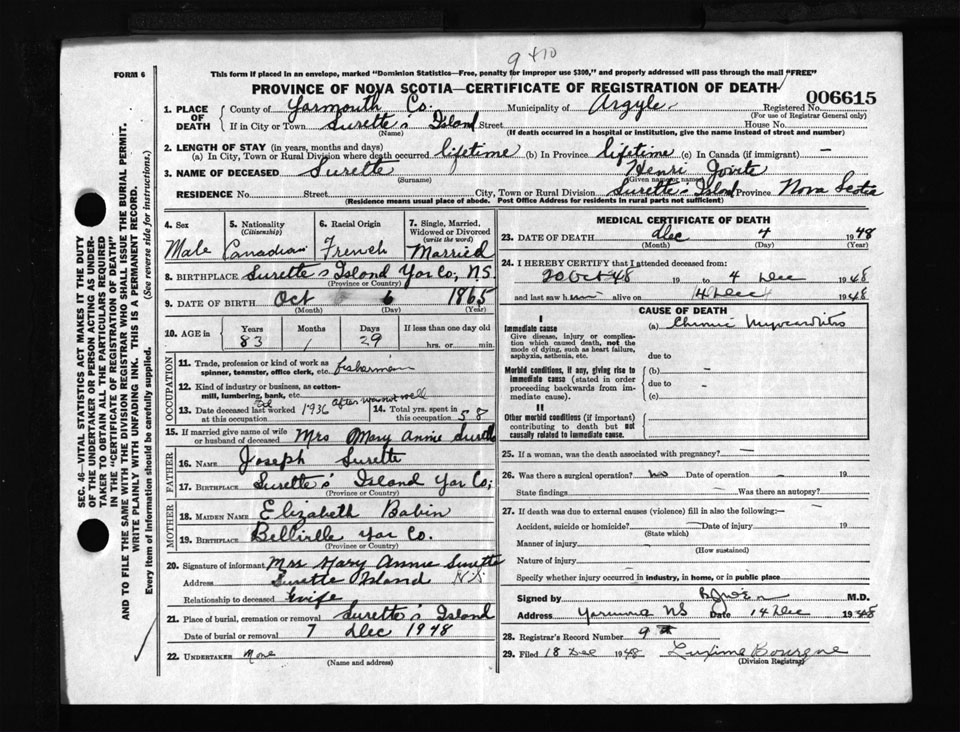 9410
FORM 6
This form if placed in an envelope, marked "Dominion Statistics—Free, penalty for improper use $300," and properly addressed will pass through the mail "FREE"
PROVINCE OF NOVA SCOTIA—CERTIFICATE OF REGISTRATION OF DEATH
006615
1. PLACE OF DEATH
County of Yarmouth Co. Municipality of Argyle Registered No.
(For use of Registrar General only)
If in City or Town Surette's Island Street House No.
(Name) (If death occurred in a hospital or institution, give the name instead of street and number)
2. LENGTH OF STAY (in years, months and days)
(a) In City, Town or Rural Division where death occurred lifetime (b) In Province lifetime (c) In Canada (if immigrant) —
3. NAME OF DECEASED Surette Henri
(Surname) (Given name or names)
RESIDENCE No. Street City, Town or Rural Division Surette Island Province Nova Scotia
(Residence means usual place of abode. Post Office Address for residents in rural parts not sufficient)
4. Sex 5. Nationality (Citizenship) 6. Racial Origin 7. Single, Married, Widowed or Divorced (write the word)
Male Canadian French Married
8. BIRTHPLACE Surette's Island Yar Co, N.S.
(Province or Country)
9. DATE OF BIRTH Oct 6 1865
(Month) (Day) (Year)
10. AGE in Years Months Days If less than one day old
83 1 29 hrs. or min.
OCCUPATION
11. Trade, profession or kind of work as spinner, teamster, office clerk, etc. fisherman
12. Kind of industry or business, as cotton-mill, lumbering, bank, etc.
13. Date deceased last worked at this occupation 1936 after was not well 14. Total yrs. spent in this occupation 58
15. If married give name of wife or husband of deceased Mrs Mary Annie Surette
FATHER
16. NAME Joseph Surette
17. BIRTHPLACE Surette's Island Yar Co;
(Province or Country)
MOTHER
18. MAIDEN NAME Elizabeth Babin
19. BIRTHPLACE Yar Co.
(Province or Country)
20. Signature of informant Mrs Mary Annie Surette
Address Surette Island N.S.
Relationship to deceased wife
21. Place of burial, cremation or removal Surette's Island
Date of burial or removal 7 Dec 1948
22. UNDERTAKER None
(Name and address)
MEDICAL CERTIFICATE OF DEATH
23. DATE OF DEATH Dec 4 1948
(Month) (Day) (Year)
24. I HEREBY CERTIFY that I attended deceased from:
20 Oct 48 19 to 4 Dec 1948
and last saw him alive on 4 Dec 1948
CAUSE OF DEATH
I
Immediate cause
Give disease, injury or complication which caused death, not the mode of dying, such as heart failure, asphyxia, asthenia, etc.
(a) Chronic Myocarditis
due to
Morbid conditions, if any, giving rise to immediate cause (stated in order proceeding backwards from immediate cause).
(b) —
due to —
(c)
II
Other morbid conditions (if important) contributing to death but not causally related to immediate cause.
25. If a woman, was the death associated with pregnancy? —
26. Was there a surgical operation? no Date of operation — 19
State findings Was there an autopsy?
27. If death was due to external causes (violence) fill in also the following:—
Accident, suicide or homicide? — Date of injury 19
(State which)
Manner of injury
(How sustained)
Nature of injury
Specify whether injury occurred in industry, in home, or in public place
Signed by M.D.
Address NS Date 14 Dec 1948
28. Registrar's Record Number 9
29. Filed 18 Dec 1948 Bourque
(Division Registrar)
SEC. 46—VITAL STATISTICS ACT MAKES IT THE DUTY
OF THE UNDERTAKER OR PERSON ACTING AS UNDER-
TAKER TO OBTAIN ALL THE PARTICULARS REQUIRED
IN THE "CERTIFICATE OF REGISTRATION OF DEATH"
AND TO FILE THE SAME WITH THE DIVISION REGISTRAR WHO SHALL ISSUE THE BURIAL PERMIT.
WRITE PLAINLY WITH UNFADING INK. THIS IS A PERMANENT RECORD.
Every item of information should be carefully supplied. (See reverse side for instructions.)